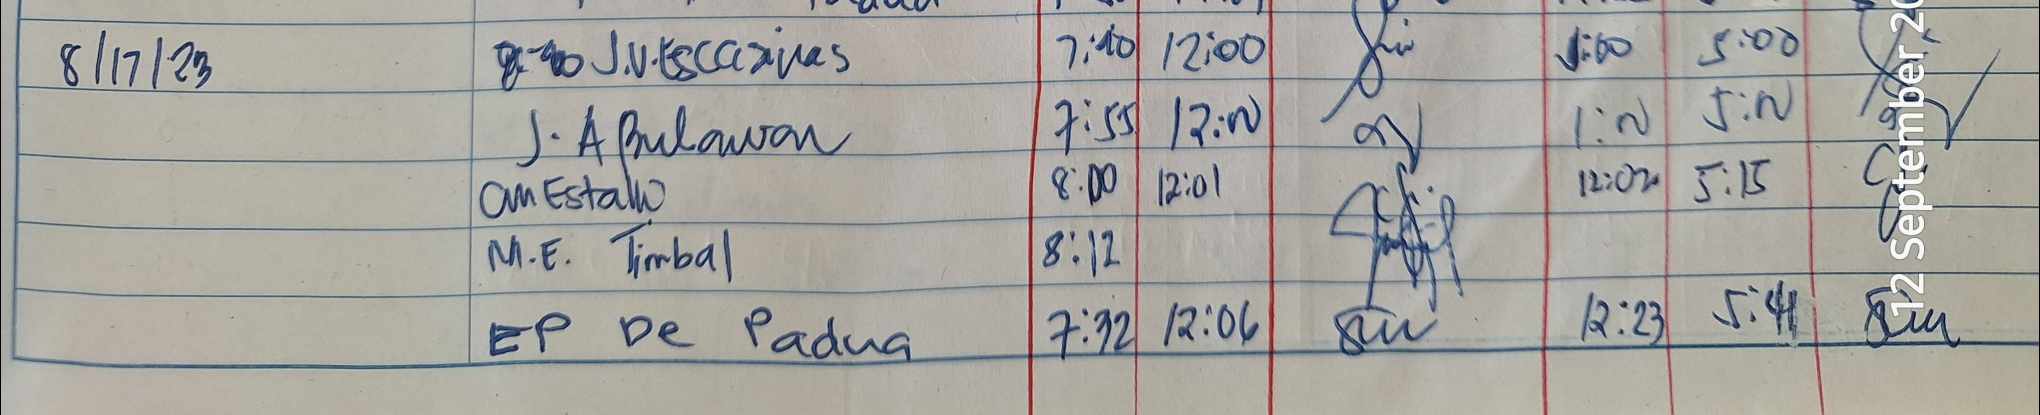 8/17/23 J.V. Escarinas 7:40 12:00 1:00 5:00
J. A Bulawan 7:55 12:00 1:00 5:00
CM Estallo 8:00 12:01 12:02 5:15
M.E. Timbal 8:12
EP De Padua 7:32 12:06 12:23 5:41
12 September 20